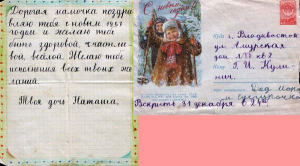 Дорогая мамочка поздра
вляю тебя с новым 1957
годом и желаю тебе
быть здоровой, счастли
вой, весёлой. Желаю тебе
исполнения всех твоих же
ланий.
Твоя дочь Наташа.
С новым
годом!
г. Владивосток
ул. Амурская
дом
кв
Г. И. Кули
нич.
Вскрыть 31 декабря в